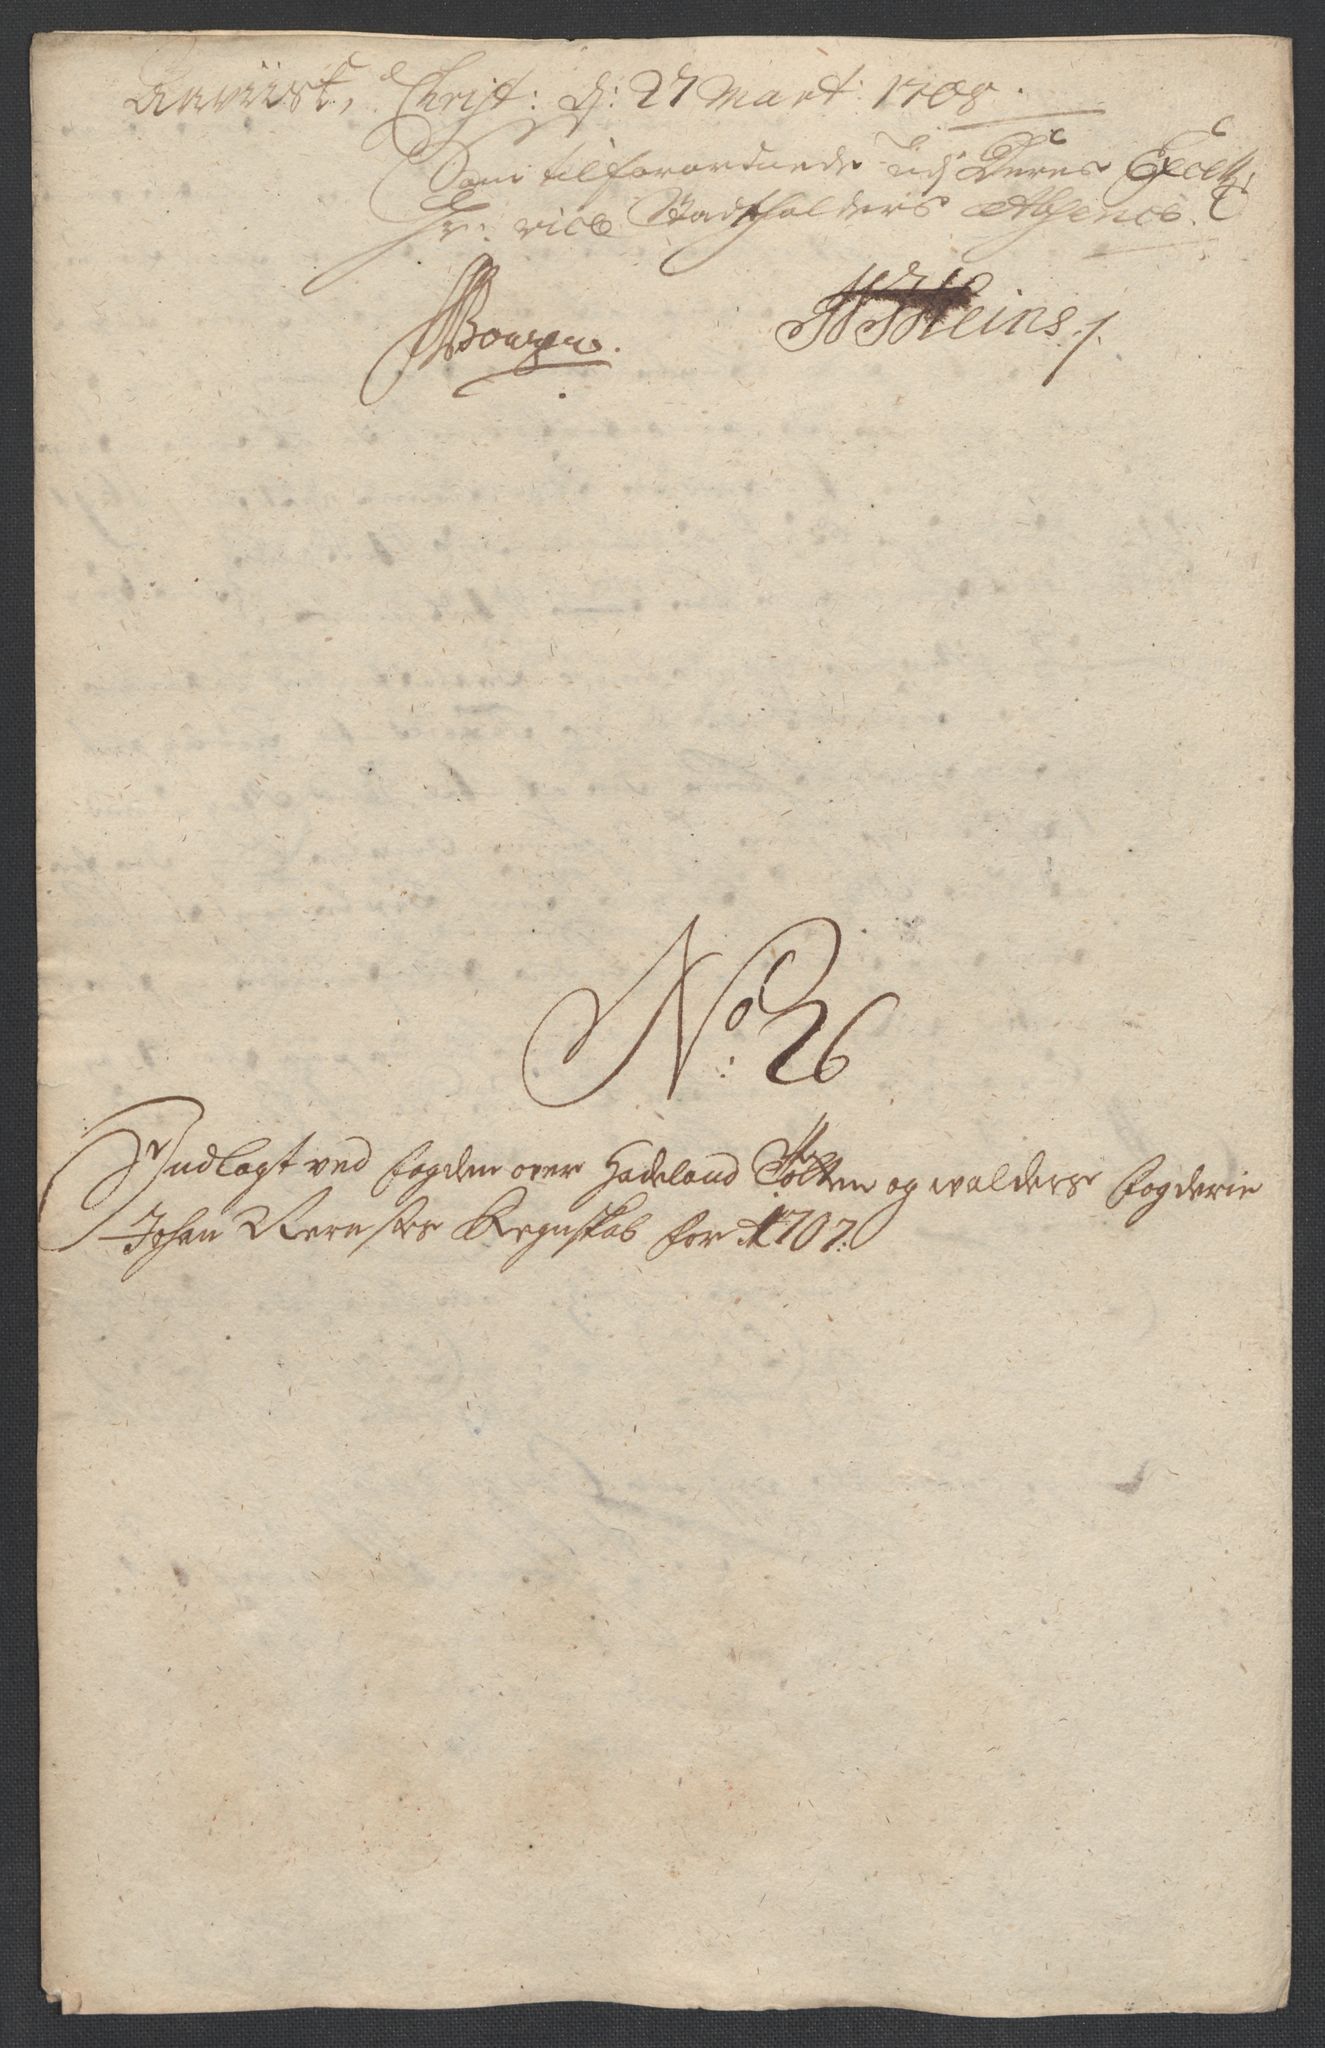 Anviist, Christ: d: 27 Mart: 1708.
Som tilforordnede udj Deres Excell:
Hr: vice Stadtholders Absence.
Bougen.
Heins
No: 26
Indlagt ved fogden over Hadeland Totten og walders fogderie
Johan Rerufses Regnskab for A: 1707: